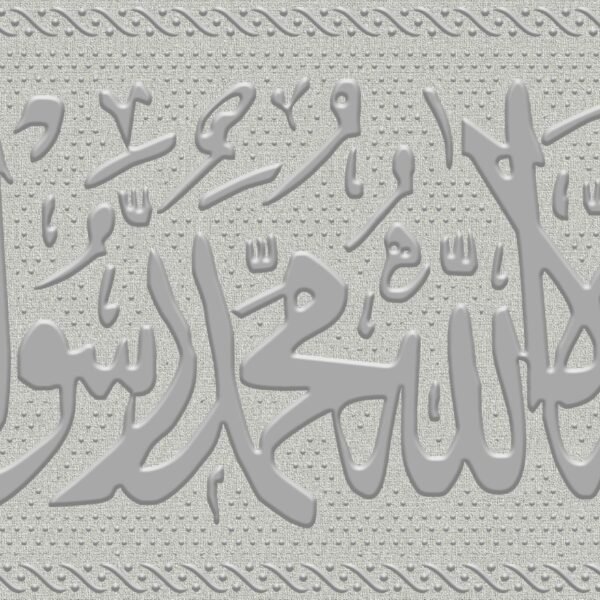 الا الله محمد رسو